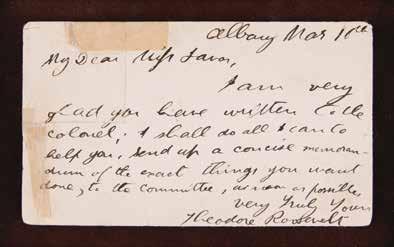 Albany Mar 10th
My Dear Miss Favor,
I am very
glad you have written to the
colonel; I shall do all I can to
help you, send up a concise memoran-
drum of the exact things you want
done, to the committee, as soon as possible,
very truly yours
Theodore Roosevelt